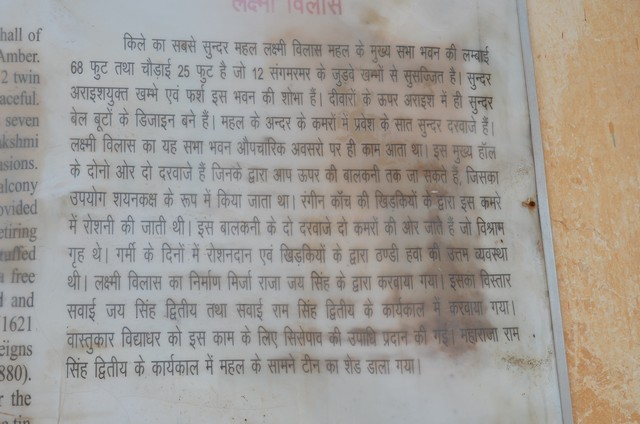 लक्ष्मी विलास
किले का सबसे सुन्दर महल लक्ष्मी विलास महल के मुख्य सभा भवन की लम्बाई
68 फुट तथा चौड़ाई 25 फुट है जो 12 संगमरमर के जुड़वे खम्भों से सुसज्जित है। सुन्दर
अराइशयुक्त खम्भे एवं फर्श इस भवन की शोभा है। दीवारों के ऊपर अराइश में ही सुन्दर
बेल बूटों के डिजाइन बने हैं। महल के अन्दर के कमरों में प्रवेश के सात सुन्दर दरवाजे हैं।
लक्ष्मी विलास का यह सभा भवन औपचारिक अवसरों पर ही काम आता था। इस मुख्य हॉल
के दोनो ओर दो दरवाजे हैं जिनके द्वारा आप ऊपर की बालकनी तक जा सकते हैं, जिसका
उपयोग शयनकक्ष के रूप में किया जाता था। रंगीन काँच की खिड़कियों के द्वारा इस कमरे
में रोशनी की जाती थी। इस बालकनी के दो दरवाजे दो कमरों की ओर जाते हैं जो विश्राम
गृह थे। गर्मी के दिनों में रोशनदान एवं खिड़कियों के द्वारा ठण्डी हवा की उत्तम व्यवस्था
थी। लक्ष्मी विलास का निर्माण मिर्जा राजा जय सिंह के द्वारा करवाया गया। इसका विस्तार
सवाई जय सिंह द्वितीय तथा सवाई राम सिंह द्वितीय के कार्यकाल में करवाया गया।
वास्तुकार विद्याधर को इस काम के लिए सिसेपाव की उपाधि प्रदान की गई। महाराजा राम
सिंह द्वितीय के कार्यकाल में महल के सामने टीन का शेड डाला गया।
hall of
Amber.
2 twin
aceful.
seven
akshmi
asions.
alcony
ovided
etiring
tuffed
a free
d and
1621
eigns
880).
r the